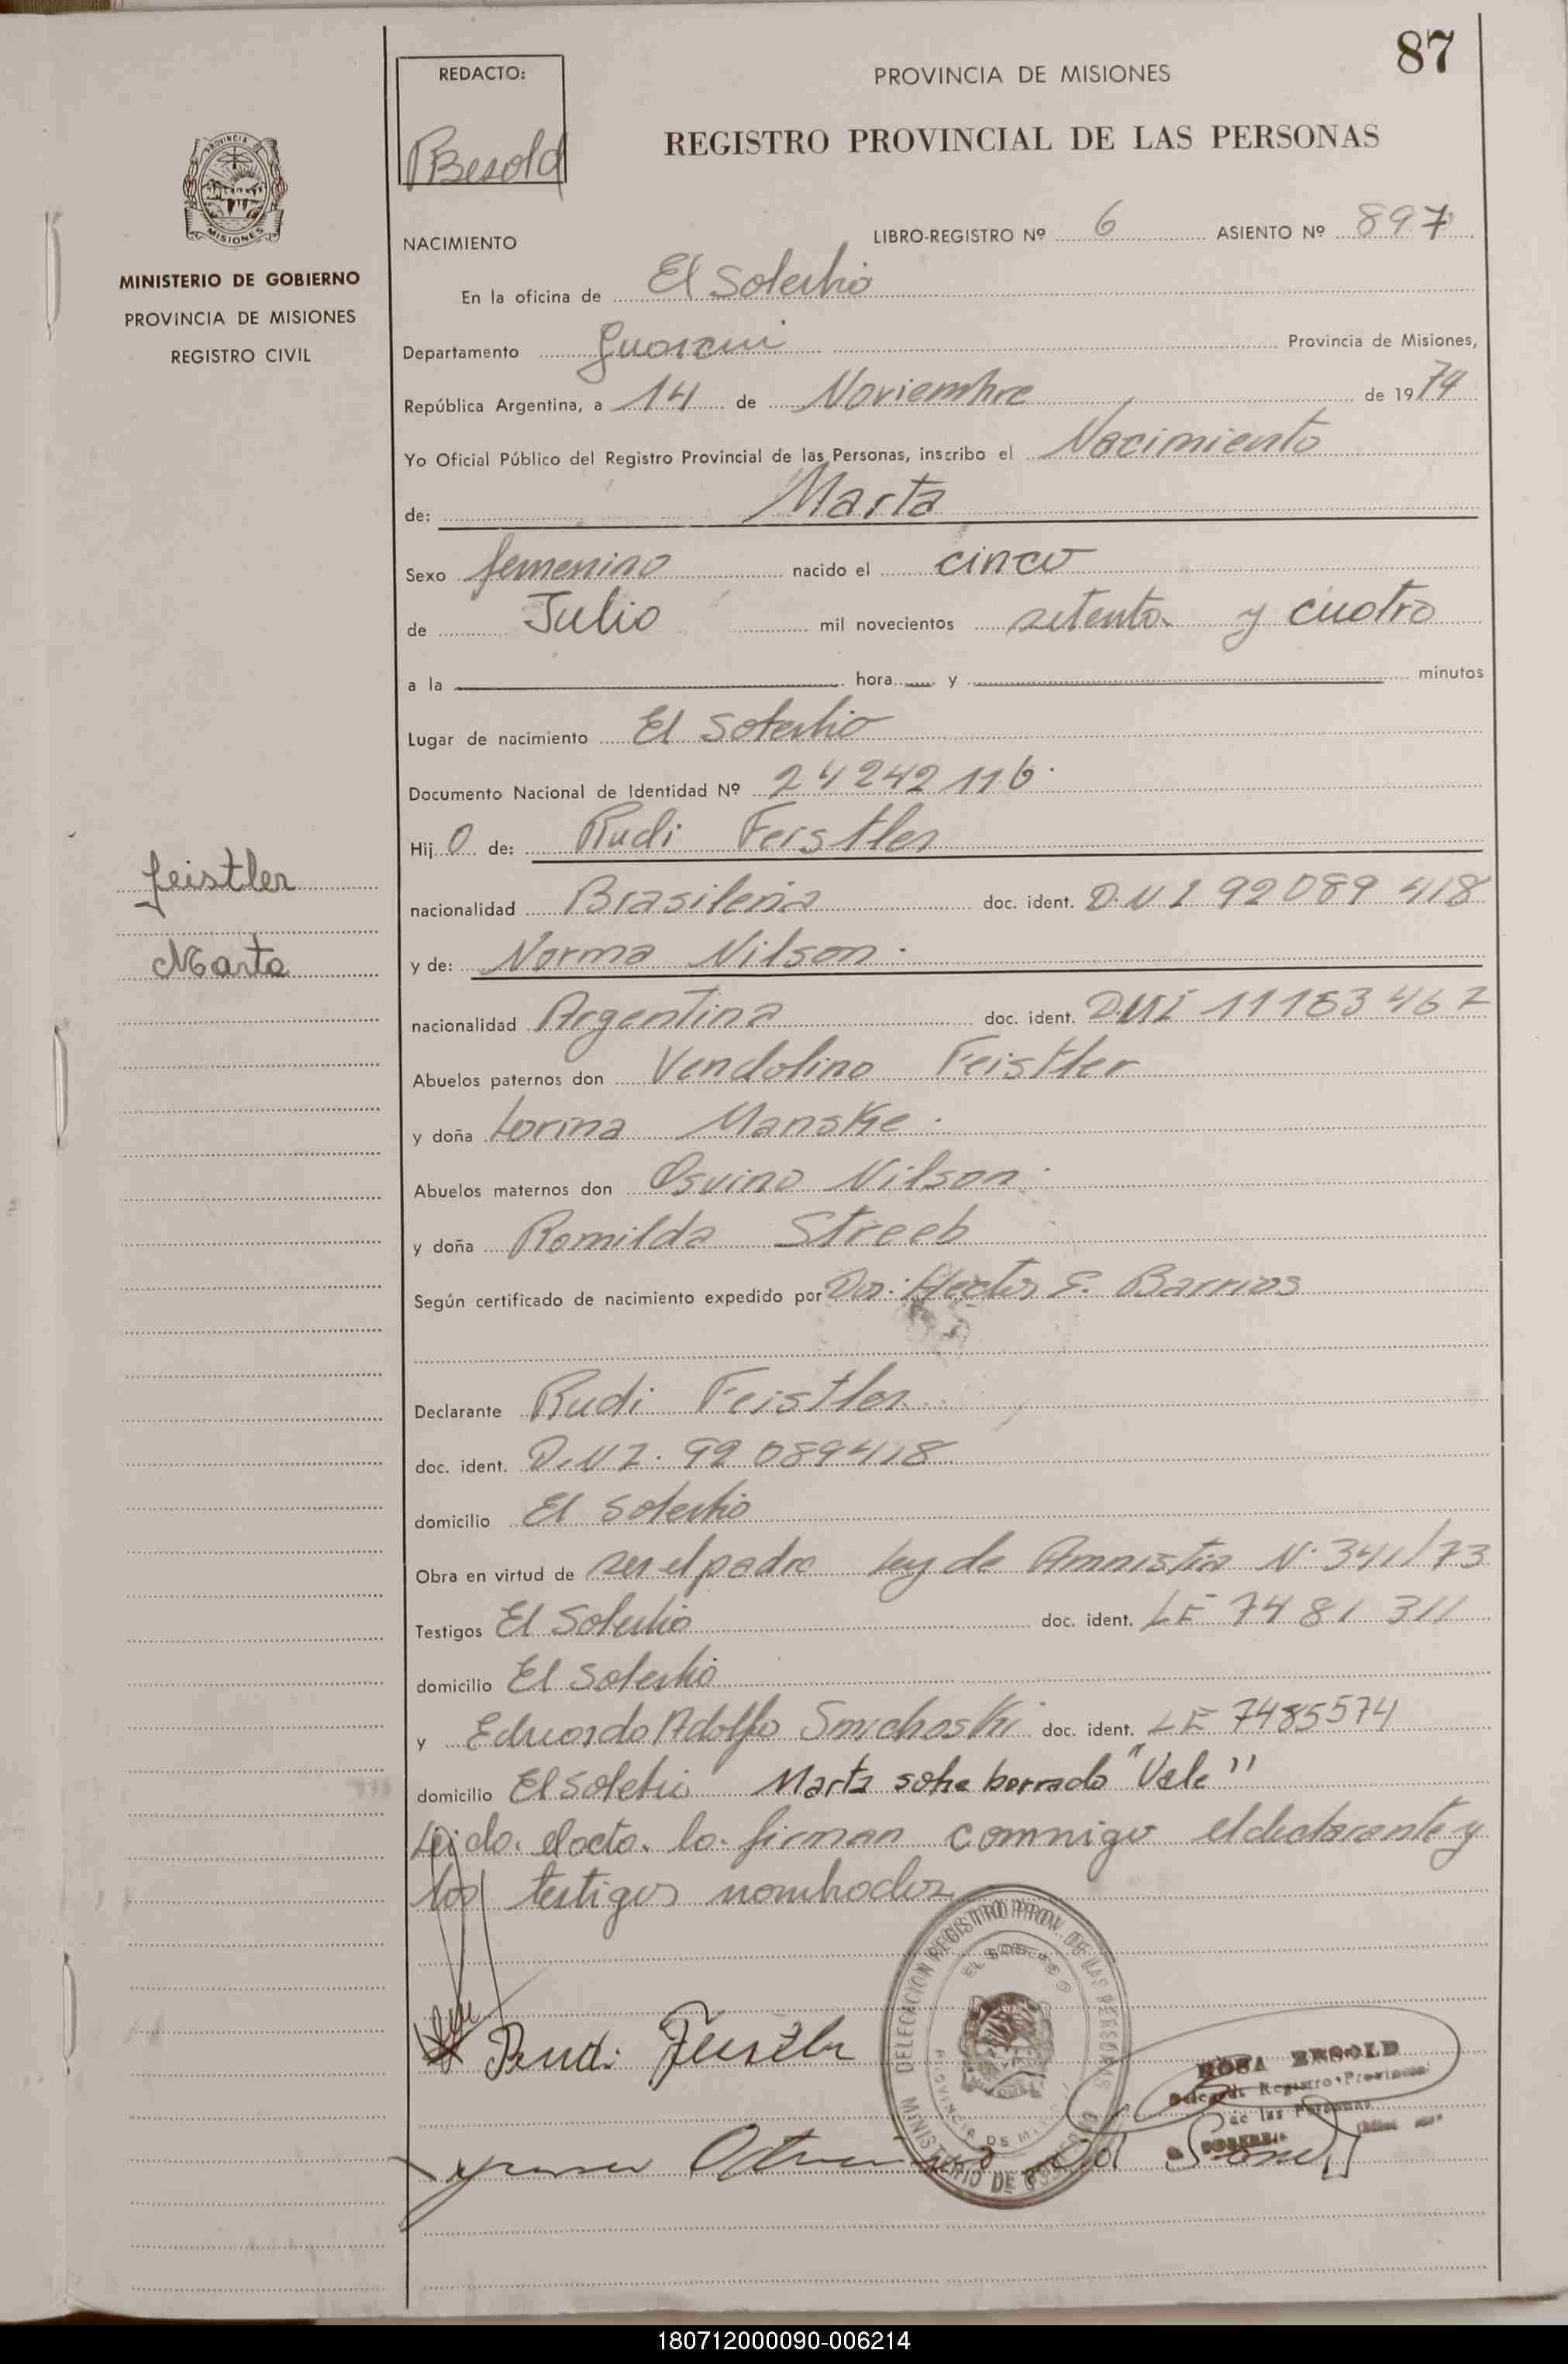 87
REDACTO:
Besold
PROVINCIA DE MISIONES
REGISTRO PROVINCIAL DE LAS PERSONAS
PROVINCIA DE
MISIONES
MINISTERIO DE GOBIERNO
PROVINCIA DE MISIONES
REGISTRO CIVIL
NACIMIENTO
LIBRO-REGISTRO Nº 6 ASIENTO Nº 897
En la oficina de El Soberbio
Departamento Guarani Provincia de Misiones,
República Argentina, a 14 de Noviembre de 1974
Yo Oficial Público del Registro Provincial de las Personas, inscribo el Nacimiento
de: Marta
Sexo femenino nacido el cinco
de Julio mil novecientos setenta y cuatro
a la hora y minutos
Lugar de nacimiento El Soberbio
Documento Nacional de Identidad Nº 24242116
Hij a de: Rudi Feistler
nacionalidad Brasileña doc. ident. D.N.I 92089418
Feistler
Marta
y de: Norma Nilson
nacionalidad Argentina doc. ident. DNI 11153467
Abuelos paternos don Vendolino Feistler
y doña Lorina Manske
Abuelos maternos don Osvino Nilson
y doña Romilda Streeb
Según certificado de nacimiento expedido por Dr. Hector E. Barrios
Declarante Rudi Feistler
doc. ident. D.N.I. 92089418
domicilio El Soberbio
Obra en virtud de ser el padre Ley de Amnistia N. 341/73
Testigos El Soberbio doc. ident. LE 7481311
domicilio El Soberbio
y Eduardo Adolfo Smichoski doc. ident. LE 7485574
domicilio El Soberbio Marta sobre borrado "Vale"
Leido el acta lo firman conmigo el declarante y
los testigos nombrados
DELEGACION REGISTRO PROV. DE LAS PERSONAS
EL SOBERBIO
PROVINCIA DE MISIONES
MINISTERIO DE GOBIERNO
Rudi Feistler
ROSA BESOLD
Registro Provincial
de las Personas
180712000090-006214